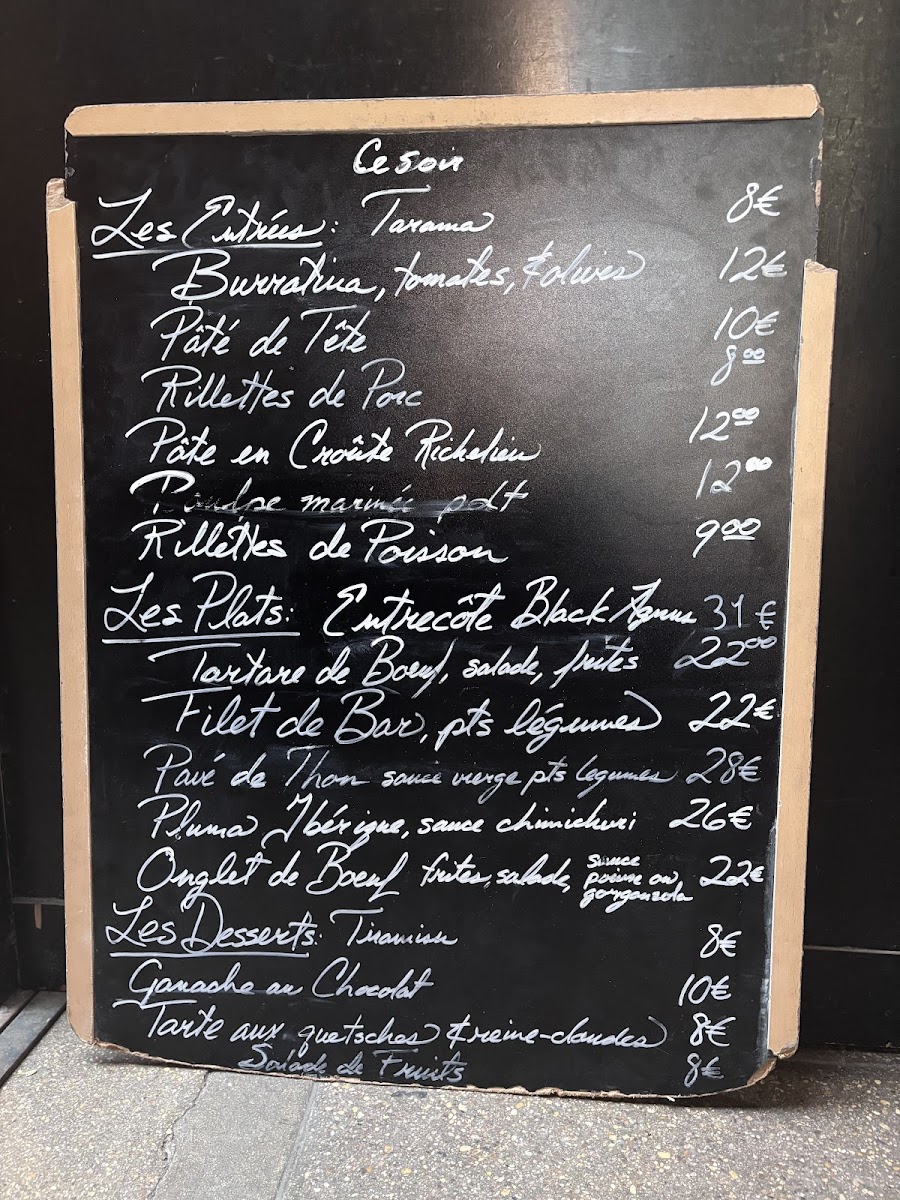 Ce soir
Les Entrées: Tarama 8€
Burratina, tomates, & olives 12€
Pâté de Tête 10€
Rillettes de Porc 8.00
Pâte en Croûte Richelieu 12.00
Poulpe marinée pdt 12.00
Rillettes de Poisson 9.00
Les Plats: Entrecôte Black Angus 31€
Tartare de Boeuf, salade, frites 22.00
Filet de Bar, pts légumes 22€
Pavé de Thon sauce vierge pts legumes 28€
Pluma Ibérique, sauce chimichuri 26€
Onglet de Boeuf frites, salade, sauce poivre ou gorgonzola 22€
Les Desserts: Tiramisu 8€
Ganache au Chocolat 10€
Tarte aux quetsches & reine-claudes 8€
Salade de Fruits 8€